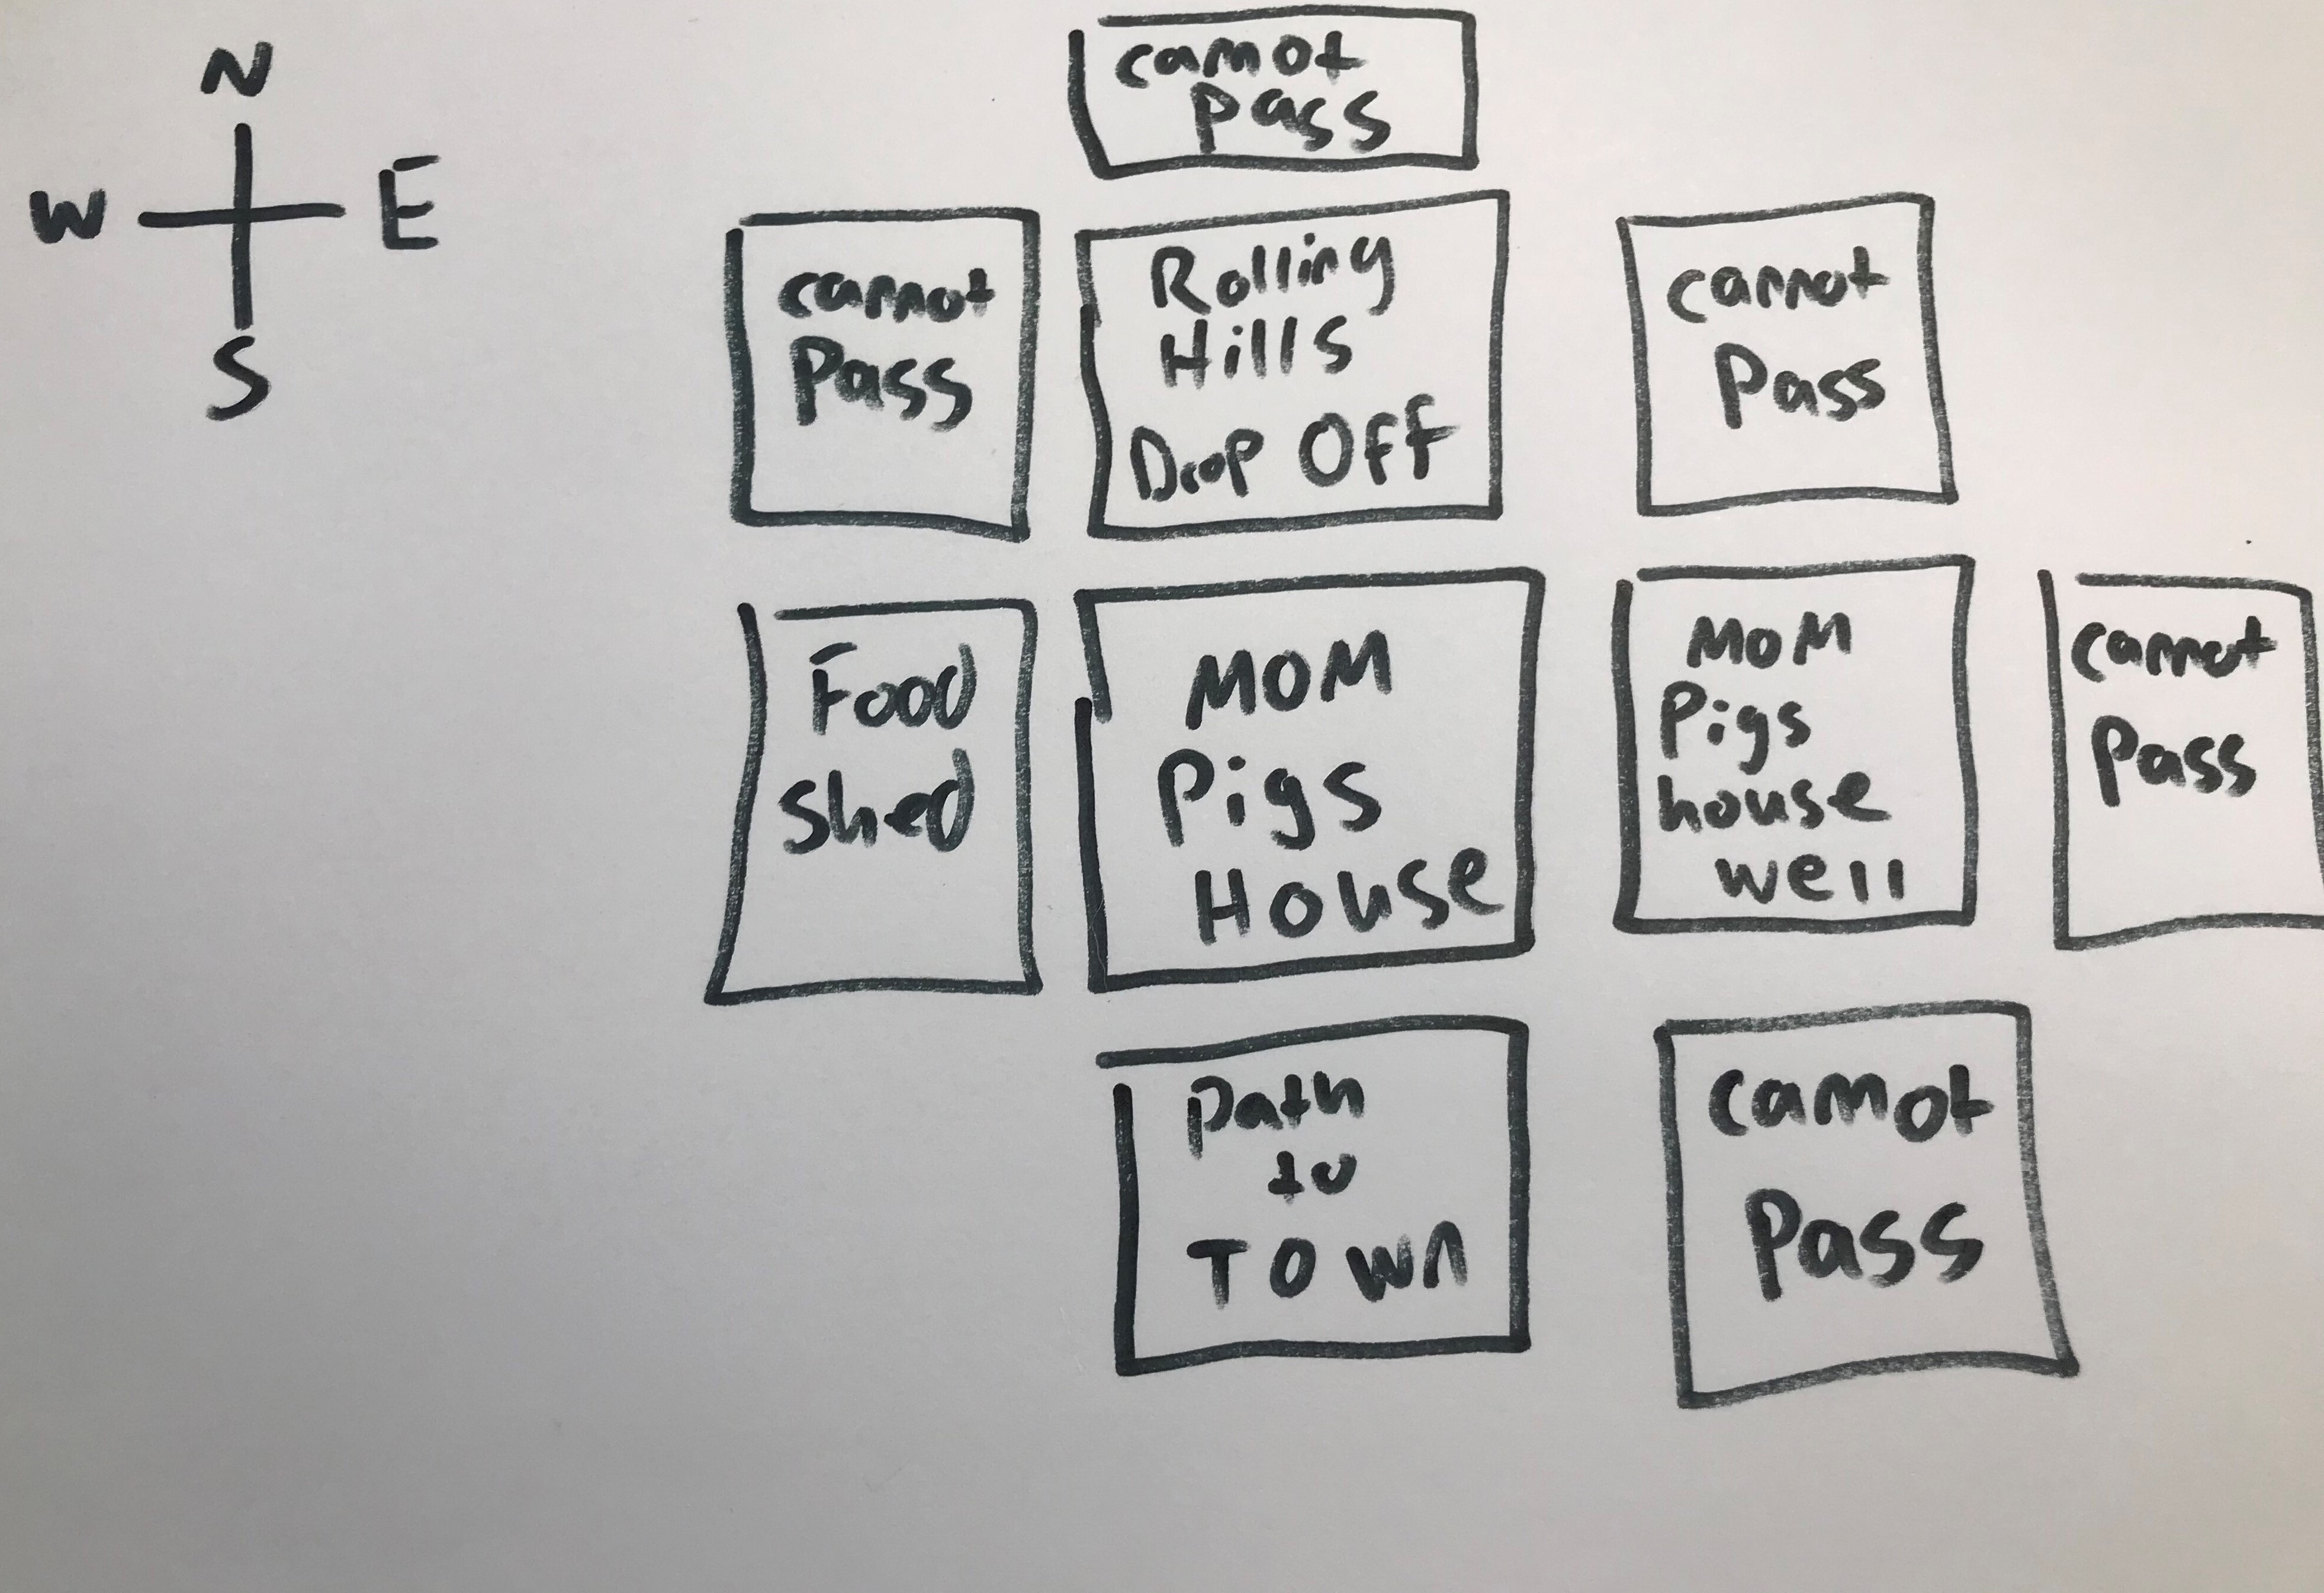 N
W E
S
cannot
pass
cannot
Pass
Rolling
Hills
Drop Off
cannot
Pass
Food
shed
MOM
Pigs
House
MOM
Pigs
house
well
cannot
Pass
path
to
TOWN
cannot
Pass